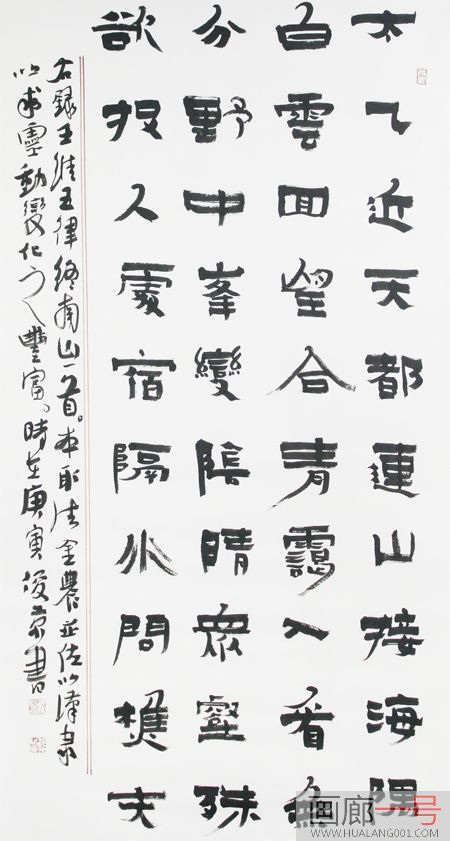 太乙近天都連山接海隅
白雲囬望合青靄入看無
分野中峯變陰晴眾壑殊
欲投人處宿隔水問樵夫
右錄王維五律終南山一首。本取法金農並佐以漢隶
以求靈動變化豐富。時在庚寅俊書
画廊一号
WWW.HUALANG001.COM